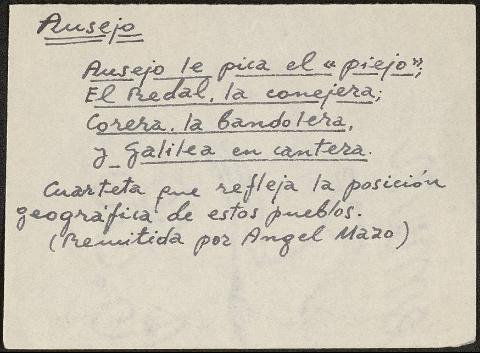 Ausejo
Ausejo le pica el "piejo";
El Redal, la conejera;
Corera, la bandolera,
y Galilea en cantera.
Cuarteta que refleja la posición
geográfica de estos pueblos.
(Remitida por Angel Mazo)